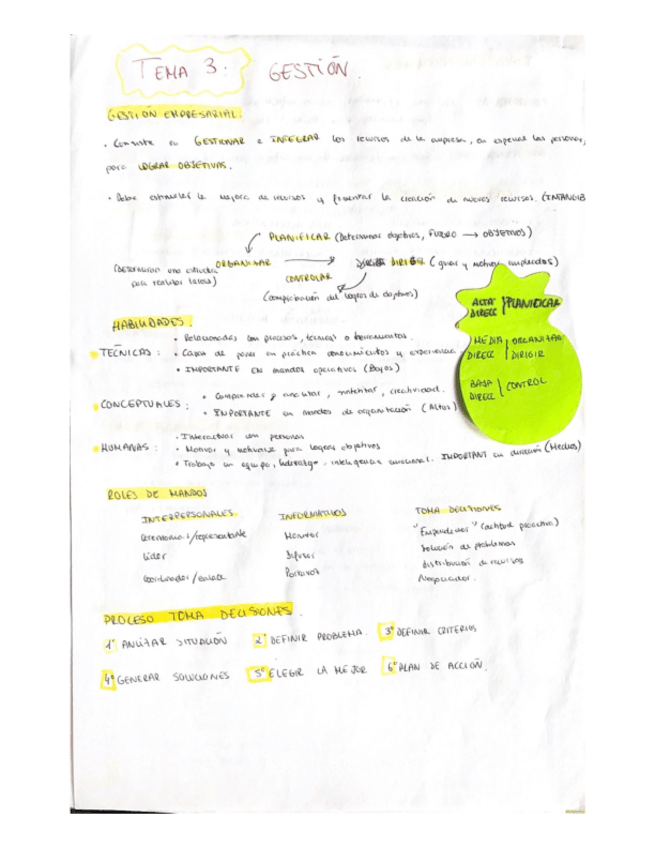 TEMA 3: GESTIÓN.
GESTIÓN EMPRESARIAL.
· Consiste en GESTIONAR e INTEGRAR los recursos de la empresa, en especial las personas,
para LOGRAR OBJETIVOS.
· Debe estimular la mejora de recursos y fomentar la creación de nuevos recursos. (INTANGIB
PLANIFICAR (Determinar objetivos, FUTURO → OBJETIVOS)
ORGANIZAR → DIRIGIR (guiar y motivar empleados)
(Determinar una estructura
para realizar tareas)
CONTROLAR
(comprobación del logros de objetivos)
ALTA DIRECC PLANIFICAR
MEDIA DIRECC ORGANIZAR DIRIGIR
BAJA DIRECC CONTROL
HABILIDADES.
· Relacionadas con procesos, técnicas o herramientas.
TÉCNICAS: · Capaz de poner en práctica conocimientos y experiencia
· IMPORTANTE EN mandos operativos (Bajos)
CONCEPTUALES: · Comprender y analizar, sintetizar, creatividad.
· IMPORTANTE en mandos de organización (Altos)
· Interactuar con personas
HUMANAS: · Motivar y motivarse para lograr objetivos
· Trabajo en equipo, liderazgo, inteligencia emocional. IMPORTANT en dirección (Medios)
ROLES DE MANDOS
INTERPERSONALES INFORMATIVOS TOMA DECISIONES
Ceremonial/representante Monitor "Emprendedor" (actitud proactiva)
Líder Difusor Solución de problemas
Coordinador/enlace Portavoz distribución de recursos
Negociador.
PROCESO TOMA DECISIONES.
1º ANALIZAR SITUACIÓN 2º DEFINIR PROBLEMA. 3º DEFINIR CRITERIOS
4º GENERAR SOLUCIONES 5º ELEGIR LA MEJOR 6º PLAN DE ACCIÓN.